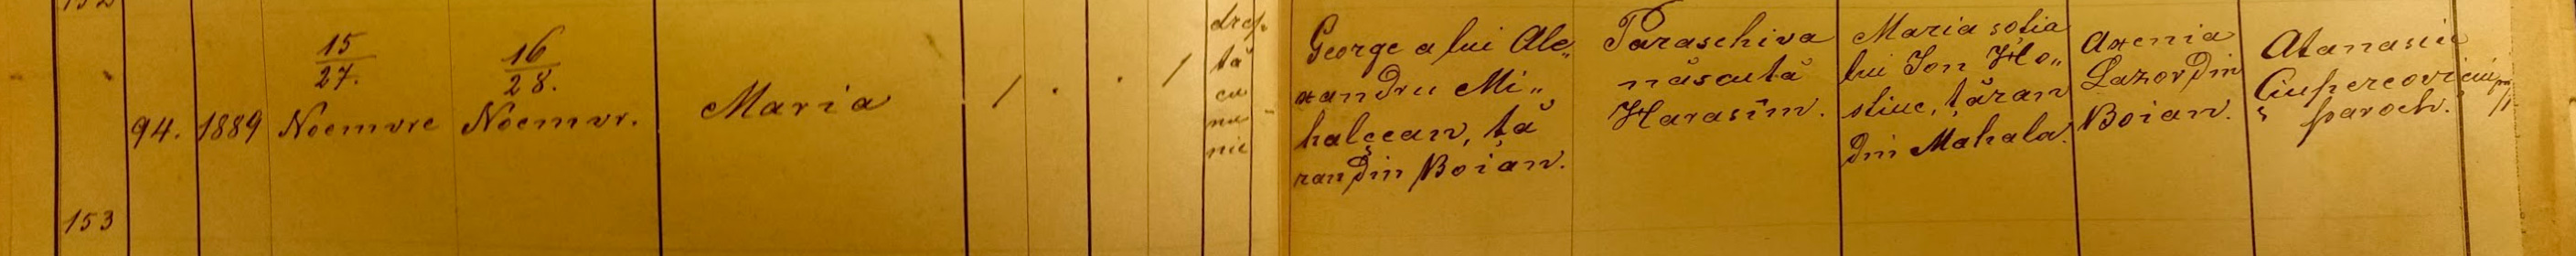 94.
1889
15
27.
Noemvre
16
28.
Noemvr.
Maria
/
.
.
/
drep
tă
cu
nu
nie
George a lui Ale„
xandru Mi„
halcean, tă
ran din Boian.
Paraschiva
născută
Harasim.
Maria soția
lui Ion Ho„
stiuc, țăran
din Mahala.
Axenia
Lazor din
Boian.
Atanasiu
Ciupercovici
paroch.
153